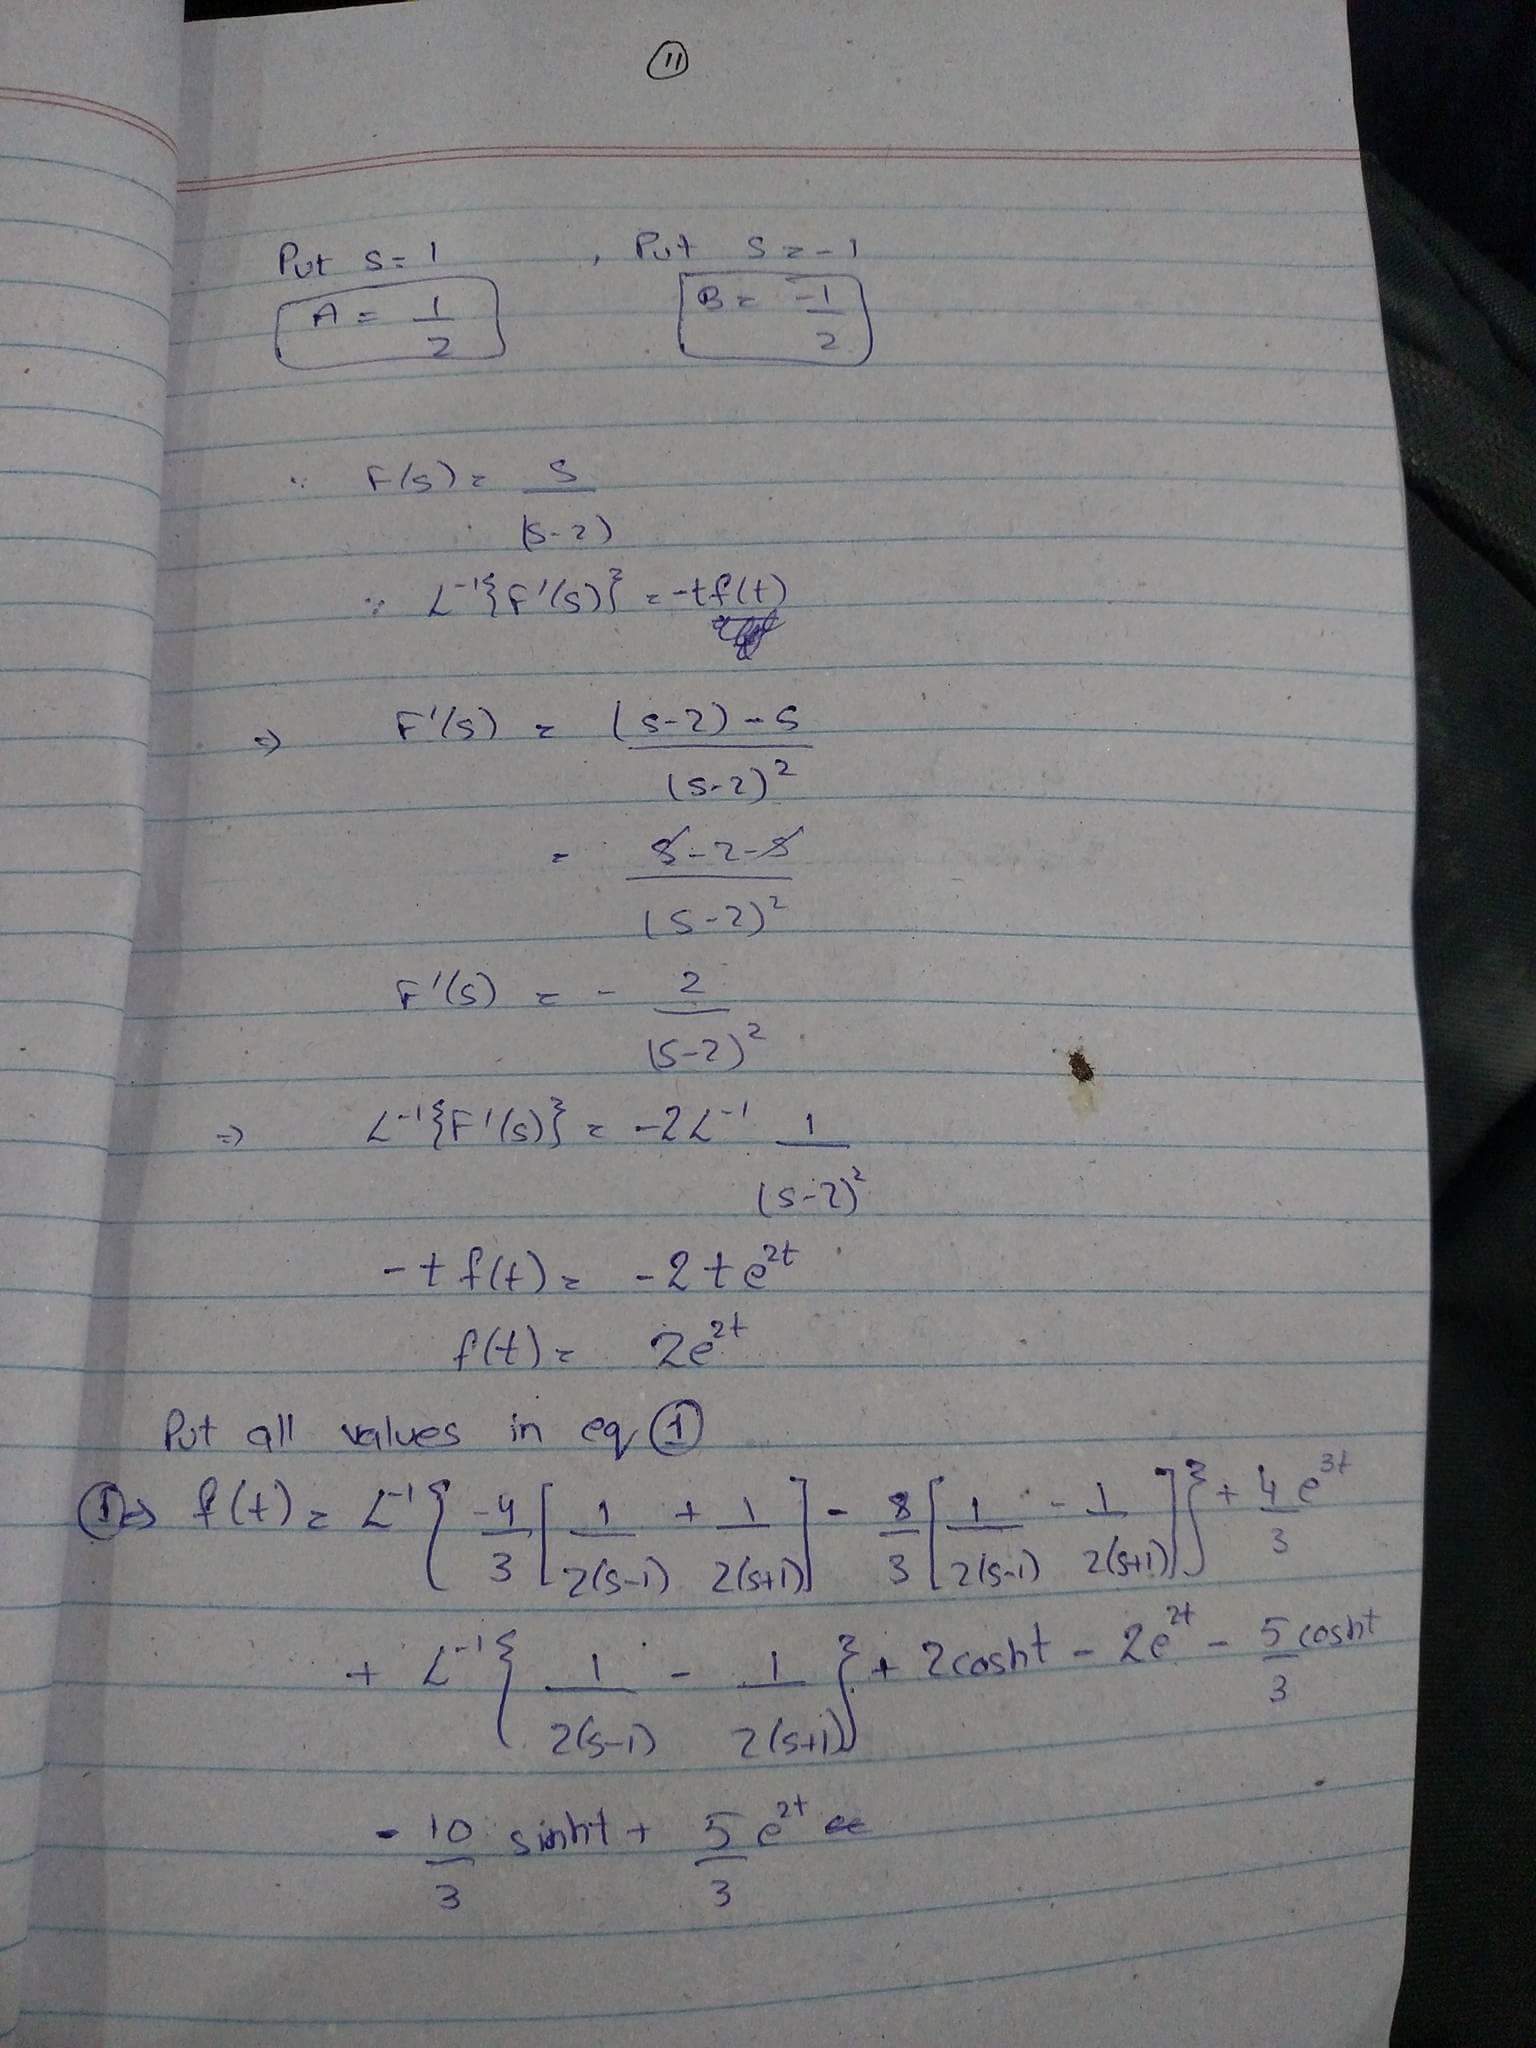 11
Put s=1 , Put s=-1
A = 1/2 B = -1/2
∵ F(s) = s/(s-2)
∵ L⁻¹{F'(s)} = -tf(t)
⇒ F'(s) = (s-2)-s/(s-2)²
= s-2-s/(s-2)²
F'(s) = - 2/(s-2)²
⇒ L⁻¹{F'(s)} = -2L⁻¹ 1/(s-2)²
-t f(t) = -2te²ᵗ
f(t) = 2e²ᵗ
Put all values in eq ①
①⇒ f(t) = L⁻¹{ -4/3 [ 1/2(s-1) + 1/2(s+1) ] - 8/3 [ 1/2(s-1) - 1/2(s+1) ] } + 4/3 e³ᵗ
+ L⁻¹{ 1/2(s-1) - 1/2(s+1) } + 2cosht - 2e²ᵗ - 5/3 cosht
- 10/3 sinht + 5/3 e²ᵗ